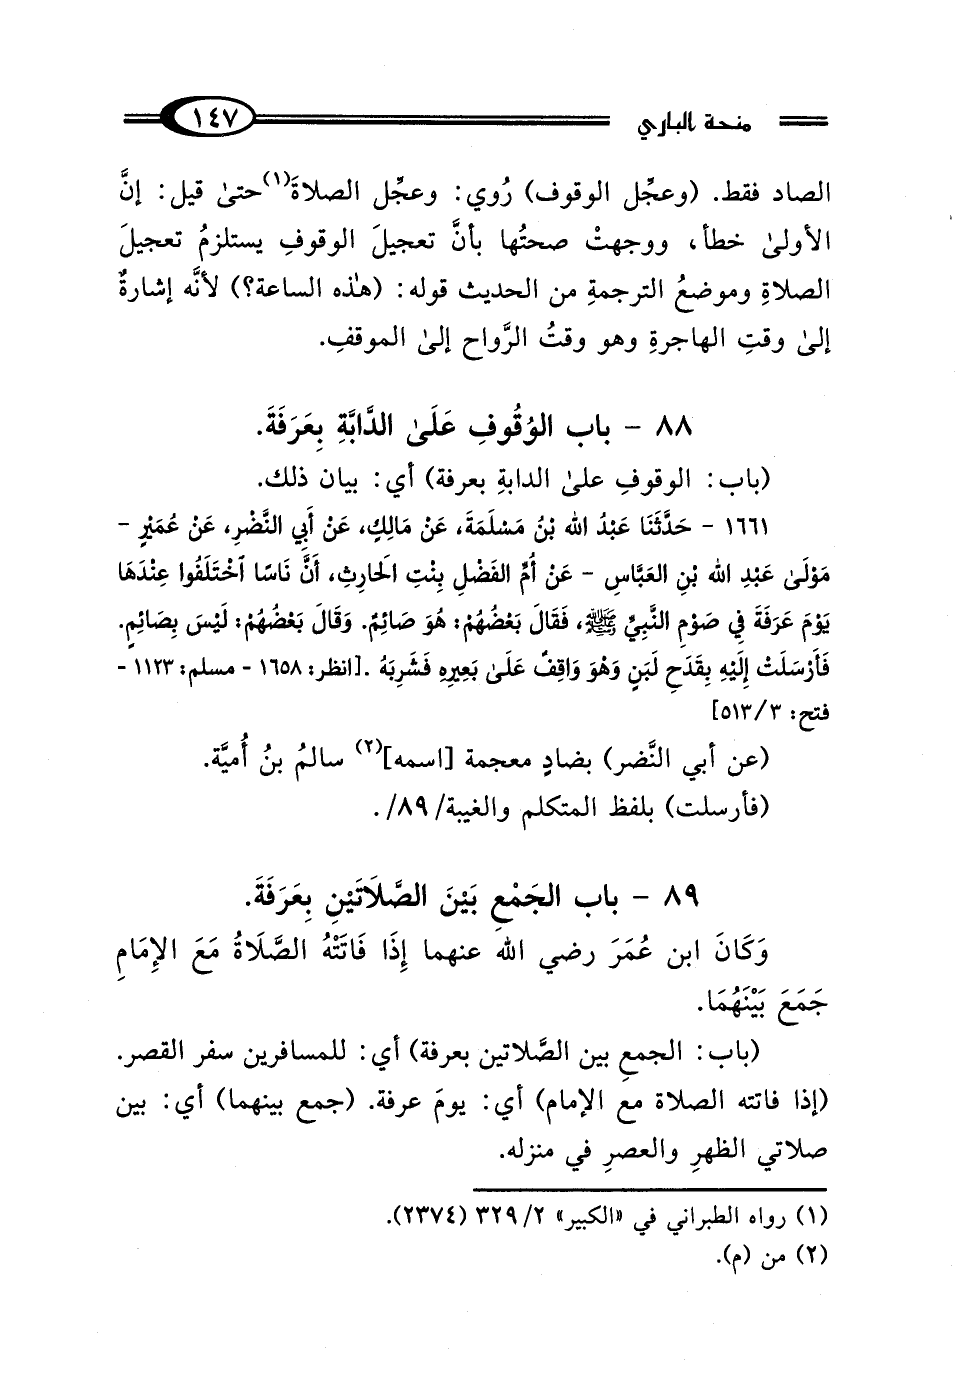 منحة الباري
١٤٧
الصاد فقط. (وعجِّل الوقوف) رُوي: وعجِّل الصلاةَ(١)حتىٰ قيل: إنَّ
الأولىٰ خطأ، ووجهتْ صحتُها بأنَّ تعجيلَ الوقوفِ يستلزمُ تعجيلَ
الصلاةِ وموضعُ الترجمةِ من الحديث قوله: (هٰذه الساعة؟) لأنَّه إشارةٌ
إلىٰ وقتِ الهاجرةِ وهو وقتُ الرَّواح إلىٰ الموقفِ.
٨٨ - باب الوُقُوفِ عَلَىٰ الدَّابَّةِ بِعَرَفَةَ.
(باب: الوقوفِ علىٰ الدابةِ بعرفة) أي: بيان ذلك.
١٦٦١ - حَدَّثَنَا عَبْدُ الله بْنُ مَسْلَمَةَ، عَنْ مَالِكٍ، عَنْ أَبِي النَّضْرِ، عَنْ عُمَيْرٍ -
مَوْلَىٰ عَبْدِ الله بْنِ العَبَّاسِ - عَنْ أُمِّ الفَضْلِ بِنْتِ الحَارِثِ، أَنَّ نَاسًا ٱخْتَلَفُوا عِنْدَهَا
يَوْمَ عَرَفَةَ فِي صَوْمِ النَّبِيِّ ﷺ، فَقَالَ بَعْضُهُمْ: هُوَ صَائِمٌ. وَقَالَ بَعْضُهُمْ: لَيْسَ بِصَائِمٍ.
فَأَرْسَلَتْ إِلَيْهِ بِقَدَحِ لَبَنٍ وَهْوَ وَاقِفٌ عَلَىٰ بَعِيرِهِ فَشَرِبَهُ .[انظر: ١٦٥٨ - مسلم: ١١٢٣ -
فتح: ٣/ ٥١٣]
(عن أبي النَّضر) بضادٍ معجمة [اسمه](٢) سالمُ بنُ أُميَّة.
(فأرسلت) بلفظ المتكلم والغيبة/ ٨٩/.
٨٩ - باب الجَمْعِ بَيْنَ الصَّلَاتَيْنِ بِعَرَفَةَ.
وَكَانَ ابن عُمَرَ رضي الله عنهما إِذَا فَاتَتْهُ الصَّلَاةُ مَعَ الإِمَامِ
جَمَعَ بَيْنَهُمَا.
(باب: الجمعِ بين الصَّلاتين بعرفة) أي: للمسافرين سفر القصر.
(إذا فاتته الصلاة مع الإمام) أي: يومَ عرفة. (جمع بينهما) أي: بين
صلاتي الظهرِ والعصرِ في منزله.
(١) رواه الطبراني في «الكبير» ٢/ ٣٢٩ (٢٣٧٤).
(٢) من (م).